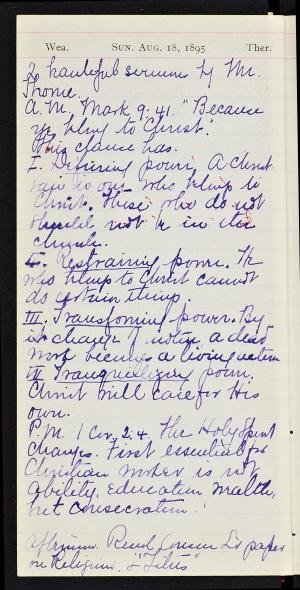 Wea. Sun. Aug. 18, 1895 Ther.
2 sermons by Mr.
Thorne.
A.M. Mark 9:41. "Because
ye belong to Christ."
This clause has.
I. Defining power, A Christ
ian is one who belongs to
Christ. Those who do not
should not be in the
church.
II. Restraining power. He
who belongs to Christ cannot
do certain things.
III. Transforming power. By
its change of motive a dead
work becomes a living action
IV Tranquillizing power.
Christ will care for His
own.
P.M. 1 Cor. 2:4. The Holy Spirit
changes. First essential for
Christian worker is not
ability, education, wealth,
but consecration.
Afternoon. Read paper
on Religion. &